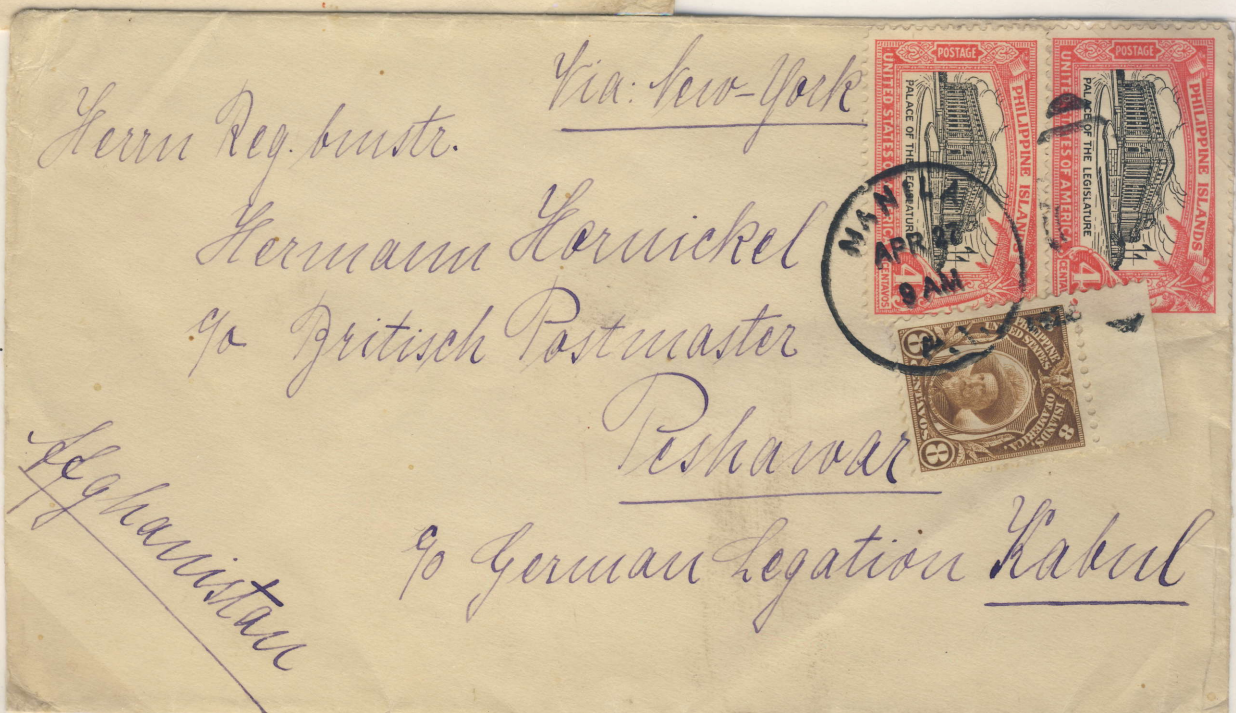 Via: New-York
Herrn Reg. bmstr.
Hermann Hornickel
c/o Britisch Postmaster
Peshawar
c/o German Legation Kabul
Afghanistan
POSTAGE
PHILIPPINE ISLANDS
UNITED STATES OF AMERICA
PALACE OF THE LEGISLATURE
4
CENTAVOS
POSTAGE
PHILIPPINE ISLANDS
UNITED STATES OF AMERICA
PALACE OF THE LEGISLATURE
4
CENTAVOS
MANILA
APR 27
9 AM
P.I.
PHILIPPINE ISLANDS
UNITED STATES OF AMERICA
8 CENTAVOS 8
8